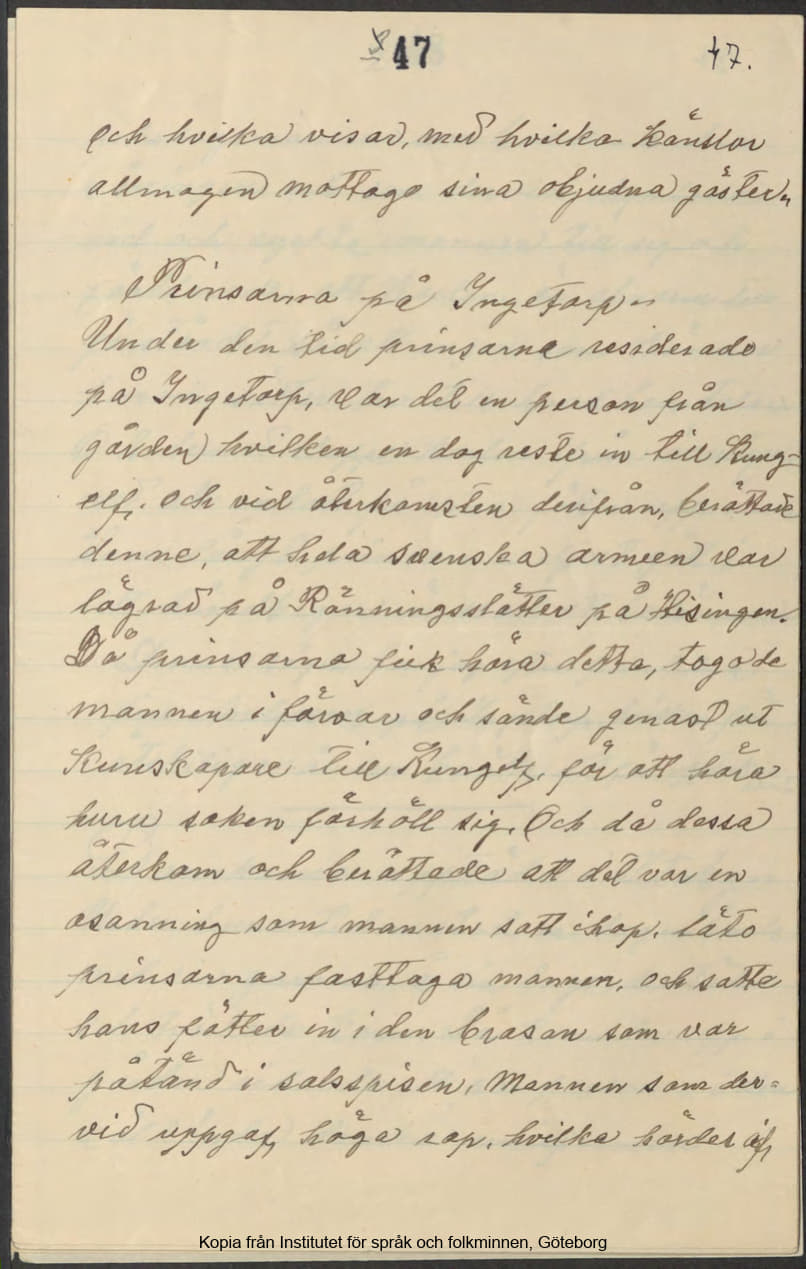 47 47.
och hvilka visar, med hvilka känslor
allmogen mottogo sina objudna gäster.
Prinsarna på Ingetorp.
Under den tid prinsarne residerade
på Ingetorp, var det en person från
gården hvilken en dag reste in till Kung-
elf. och vid återkomsten derifrån, berättade
denne, att hela svenska armeen var
lägrad på Ränningsslätter på Hisingen.
Då prinsarna fick höra detta, togo de
mannen i förvar och sände genast ut
Kunskapare till Kungelf. för att höra
huru saken förhöll sig. Och då dessa
återkom och berättade att det var en
osanning som mannen satt ihop. läto
prinsarna fasttaga mannen. och satte
hans fötter in i den brasan som var
påtänd i salsspisen, Mannen som der=
vid uppgaf höga rop. hvilka hördes af
Kopia från Institutet för språk och folkminnen, Göteborg